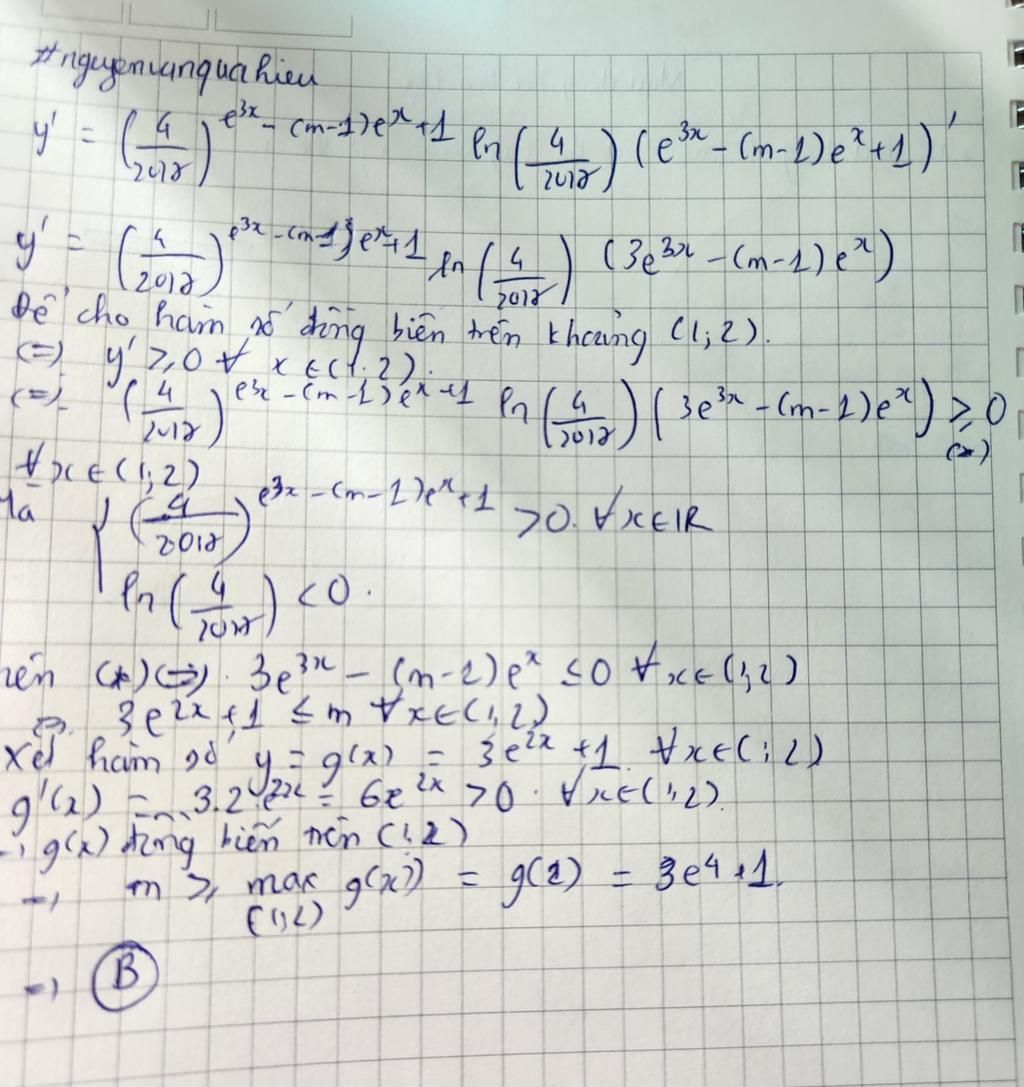 #nguyenvanquahieu
y' = (4/2018)^(e^(3x) - (m-1)e^x + 1) ln(4/2018) (e^(3x) - (m-1)e^x + 1)'
y' = (4/2018)^(e^(3x) - (m-1)e^x + 1) ln(4/2018) (3e^(3x) - (m-1)e^x)
Để cho hàm số đồng biến trên khoảng (1;2).
(=) y' ≥ 0 ∀ x ∈ (1;2).
(=) (4/2018)^(e^(3x) - (m-1)e^x + 1) ln(4/2018) (3e^(3x) - (m-1)e^x) ≥ 0 (*)
∀x ∈ (1;2)
Mà { (4/2018)^(e^(3x) - (m-1)e^x + 1) > 0. ∀x∈IR
ln(4/2018) < 0.
nên (*) (=). 3e^(3x) - (m-1)e^x ≤ 0 ∀x∈(1;2)
(=). 3e^(2x) + 1 ≤ m ∀x∈(1;2)
Xét hàm số y = g(x) = 3e^(2x) + 1. ∀x∈(1;2)
g'(x) = 3.2.e^(2x) = 6e^(2x) > 0. ∀x∈(1;2).
=> g(x) đồng biến trên (1;2)
=> m ≥ max g(x) = g(2) = 3e^4 + 1.
(1;2)
=> B